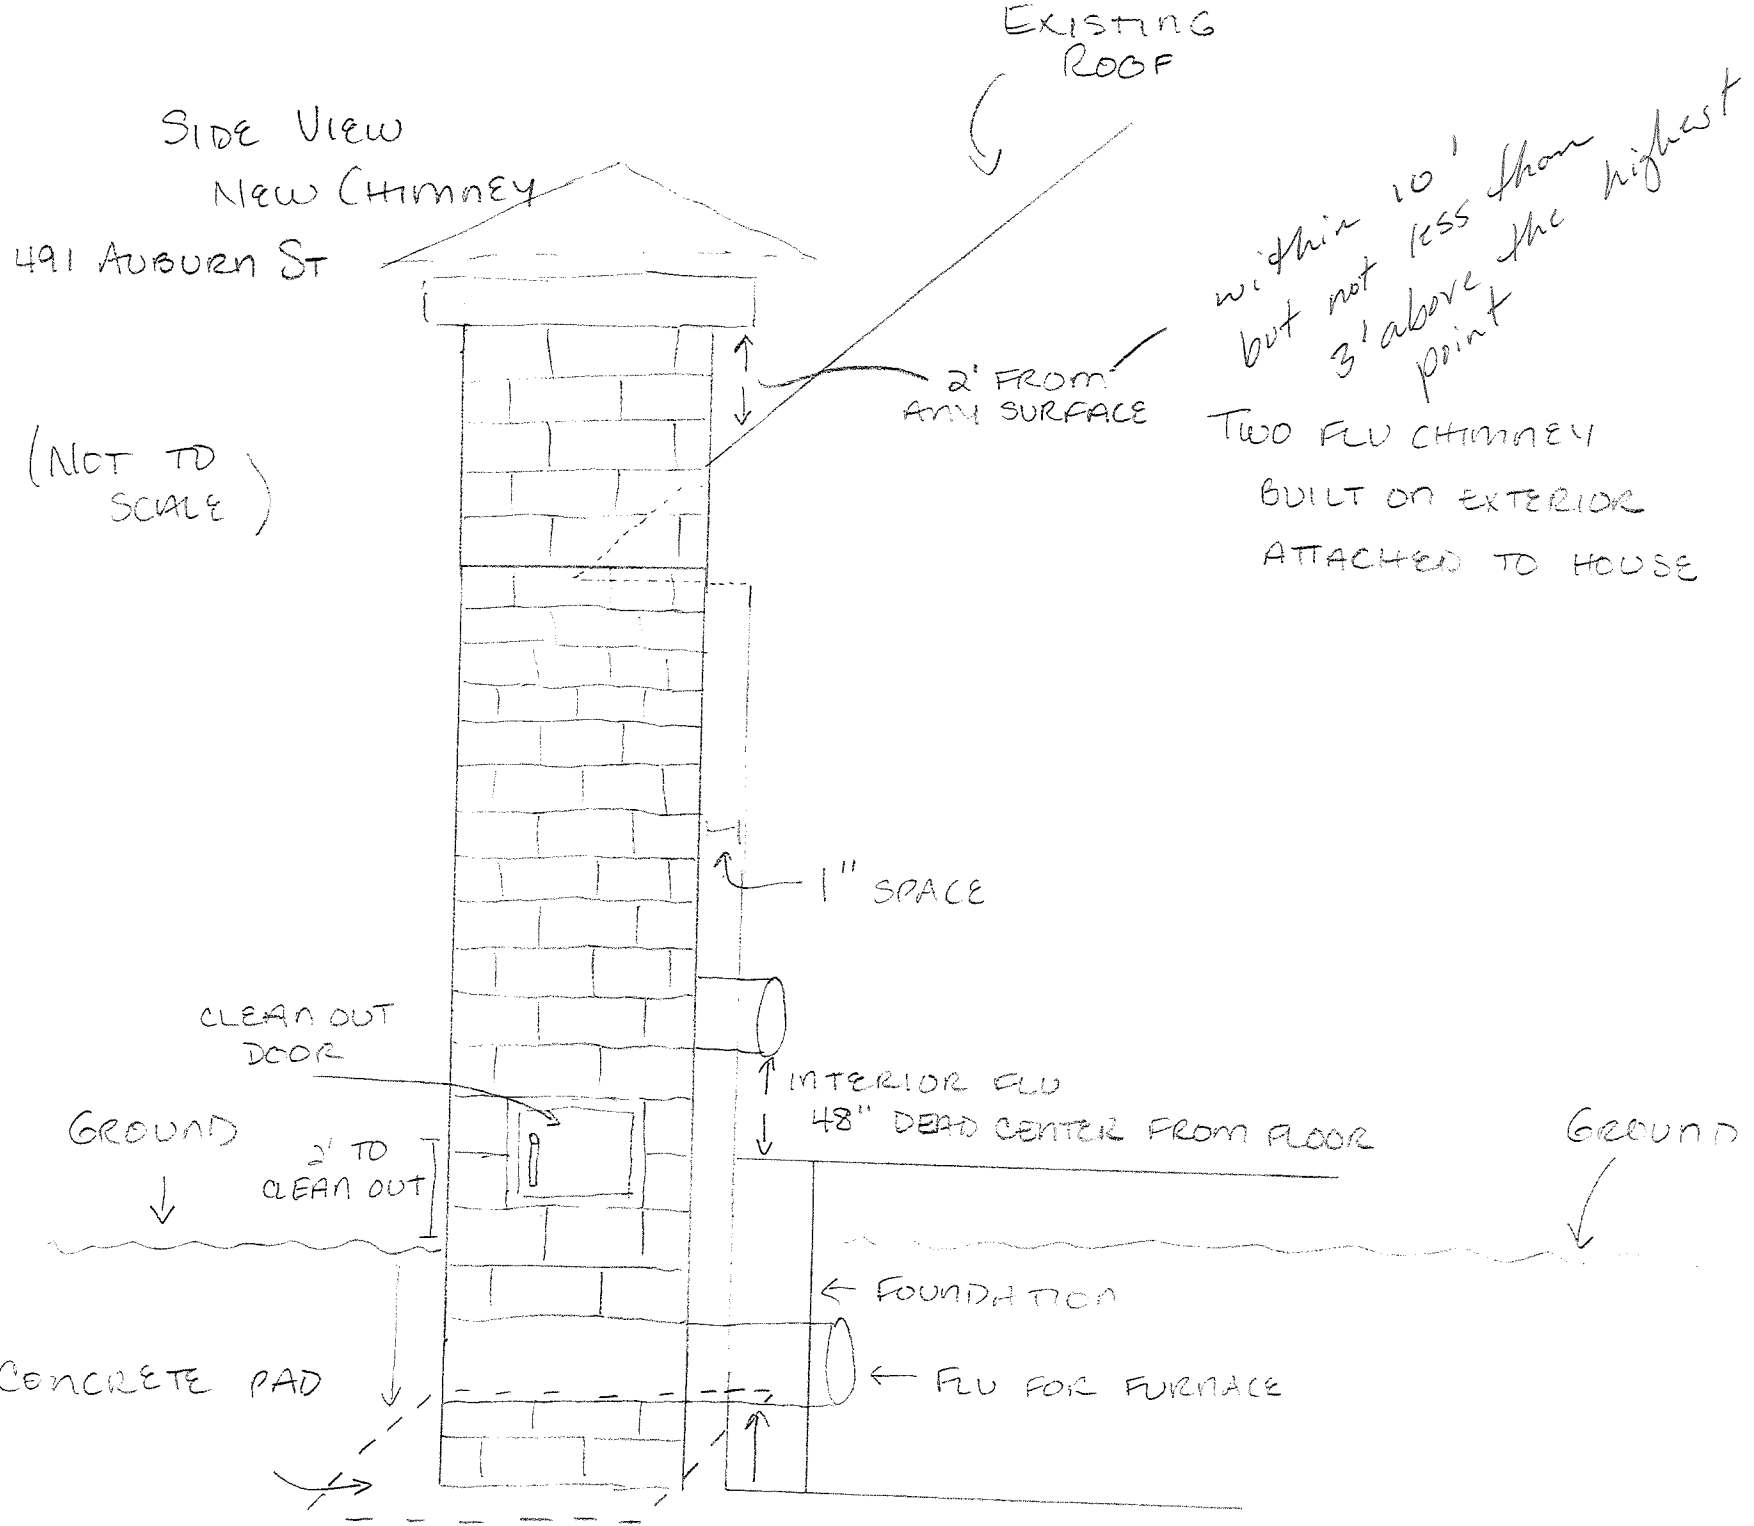 EXISTING
ROOF
SIDE VIEW
NEW CHIMNEY
491 AUBURN ST
within 10'
but not less than
3' above the highest
point
2' FROM
ANY SURFACE
TWO FLU CHIMNEY
BUILT ON EXTERIOR
ATTACHED TO HOUSE
(NOT TO
SCALE)
1" SPACE
CLEAN OUT
DOOR
INTERIOR FLU
48" DEAD CENTER FROM FLOOR
GROUND
GROUND
2' TO
CLEAN OUT
FOUNDATION
CONCRETE PAD
FLU FOR FURNACE